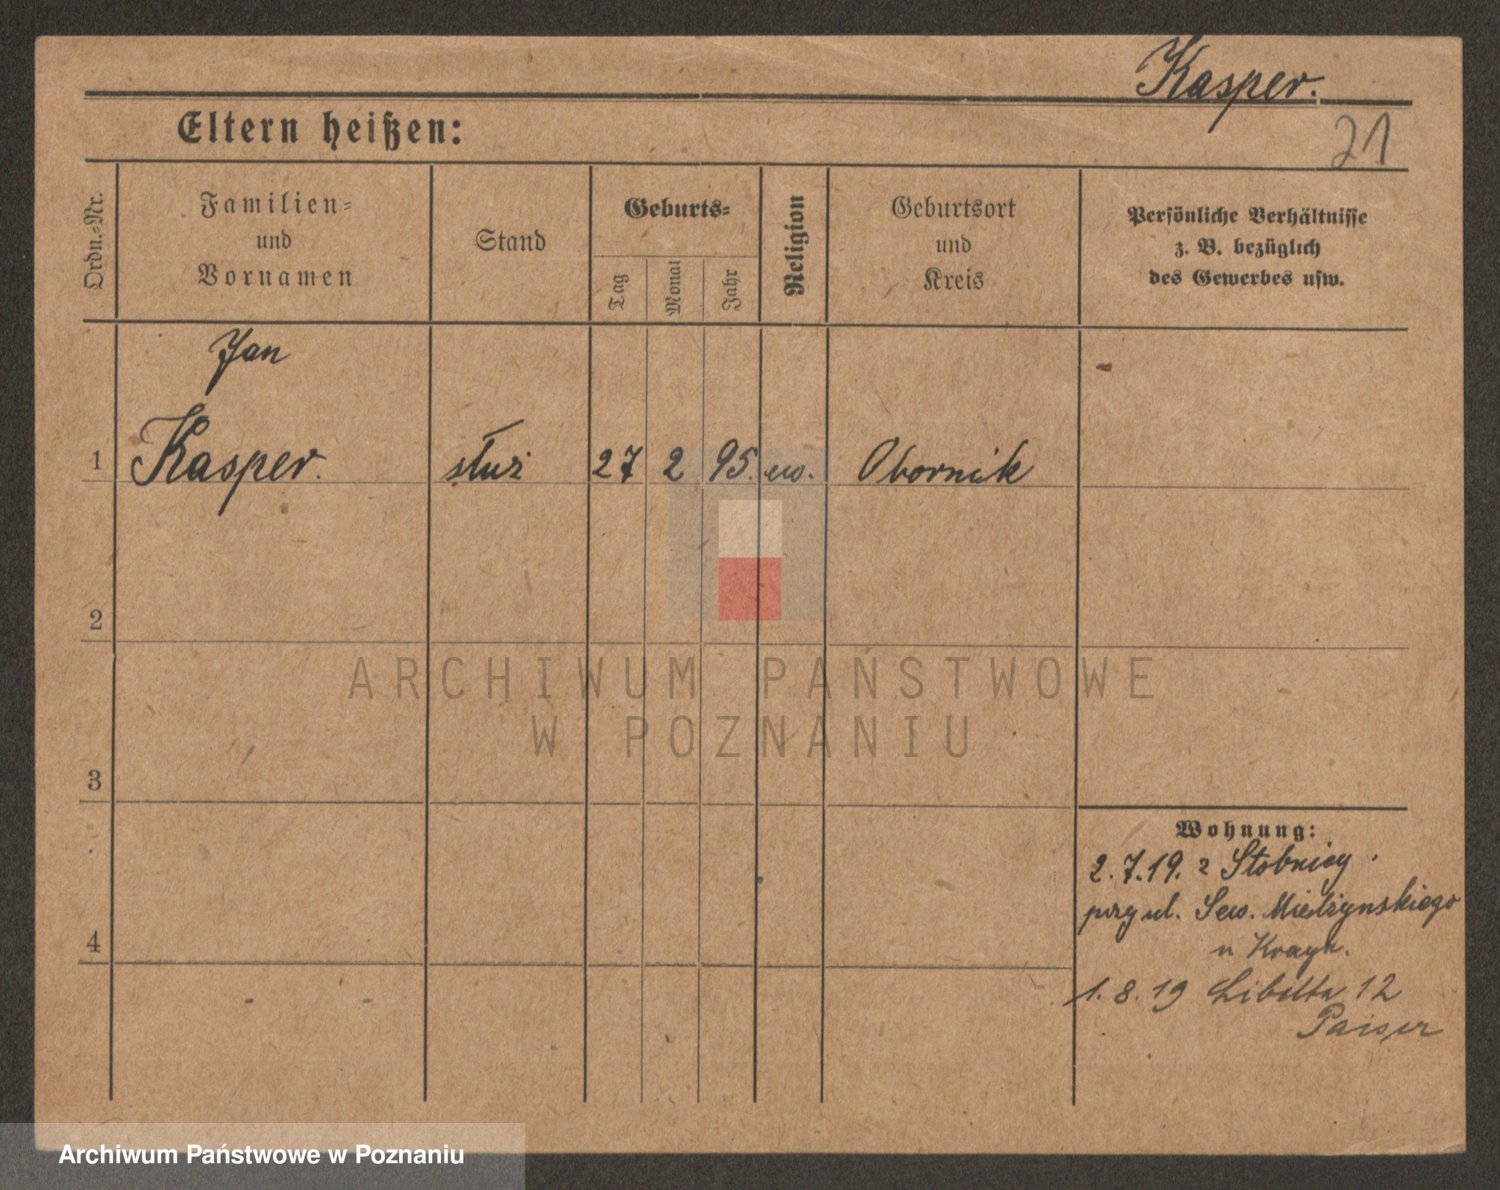 Kasper.
Eltern heißen:
21
Ordn.-Nr.
Familien-
und
Vornamen
Stand
Geburts-
Tag
Monat
Jahr
Religion
Geburtsort
und
Kreis
Persönliche Verhältnisse
z. B. bezüglich
des Gewerbes usw.
Jan
1 Kasper. służ 27 2 95. ew. Obornik
2
ARCHIWUM PAŃSTWOWE
W POZNANIU
3
Wohnung:
2.7.19. z Stobnicy
przy ul. Sew. Mielżynskiego
u
4
1.8.19 Libelta 12
Archiwum Państwowe w Poznaniu